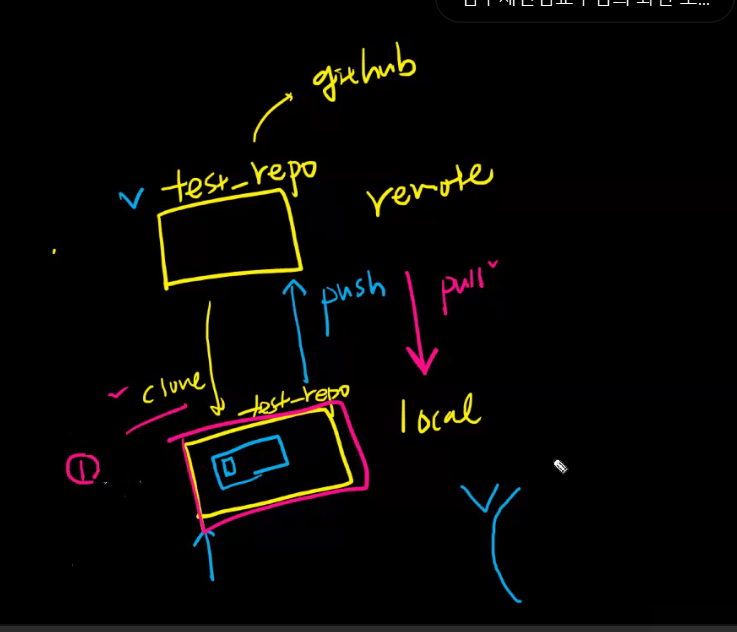 github
test_repo
remote
push
pull
clone
test_repo
local
①